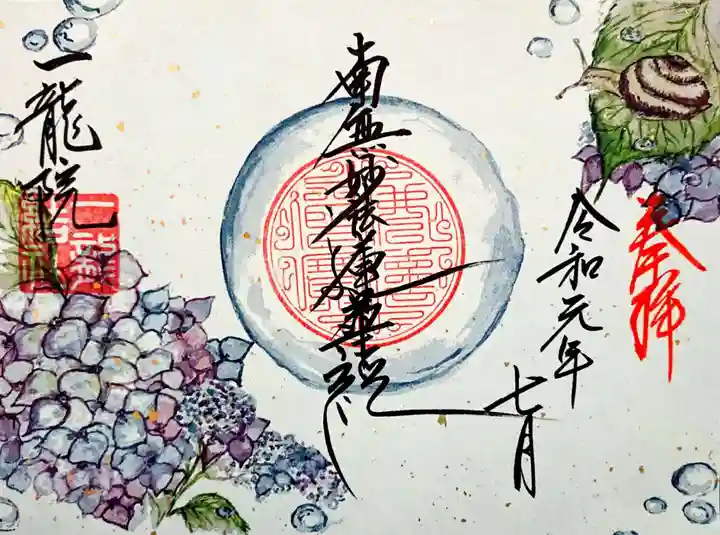 奉拝
令和元年
七月
南無妙法蓮華経
一龍院